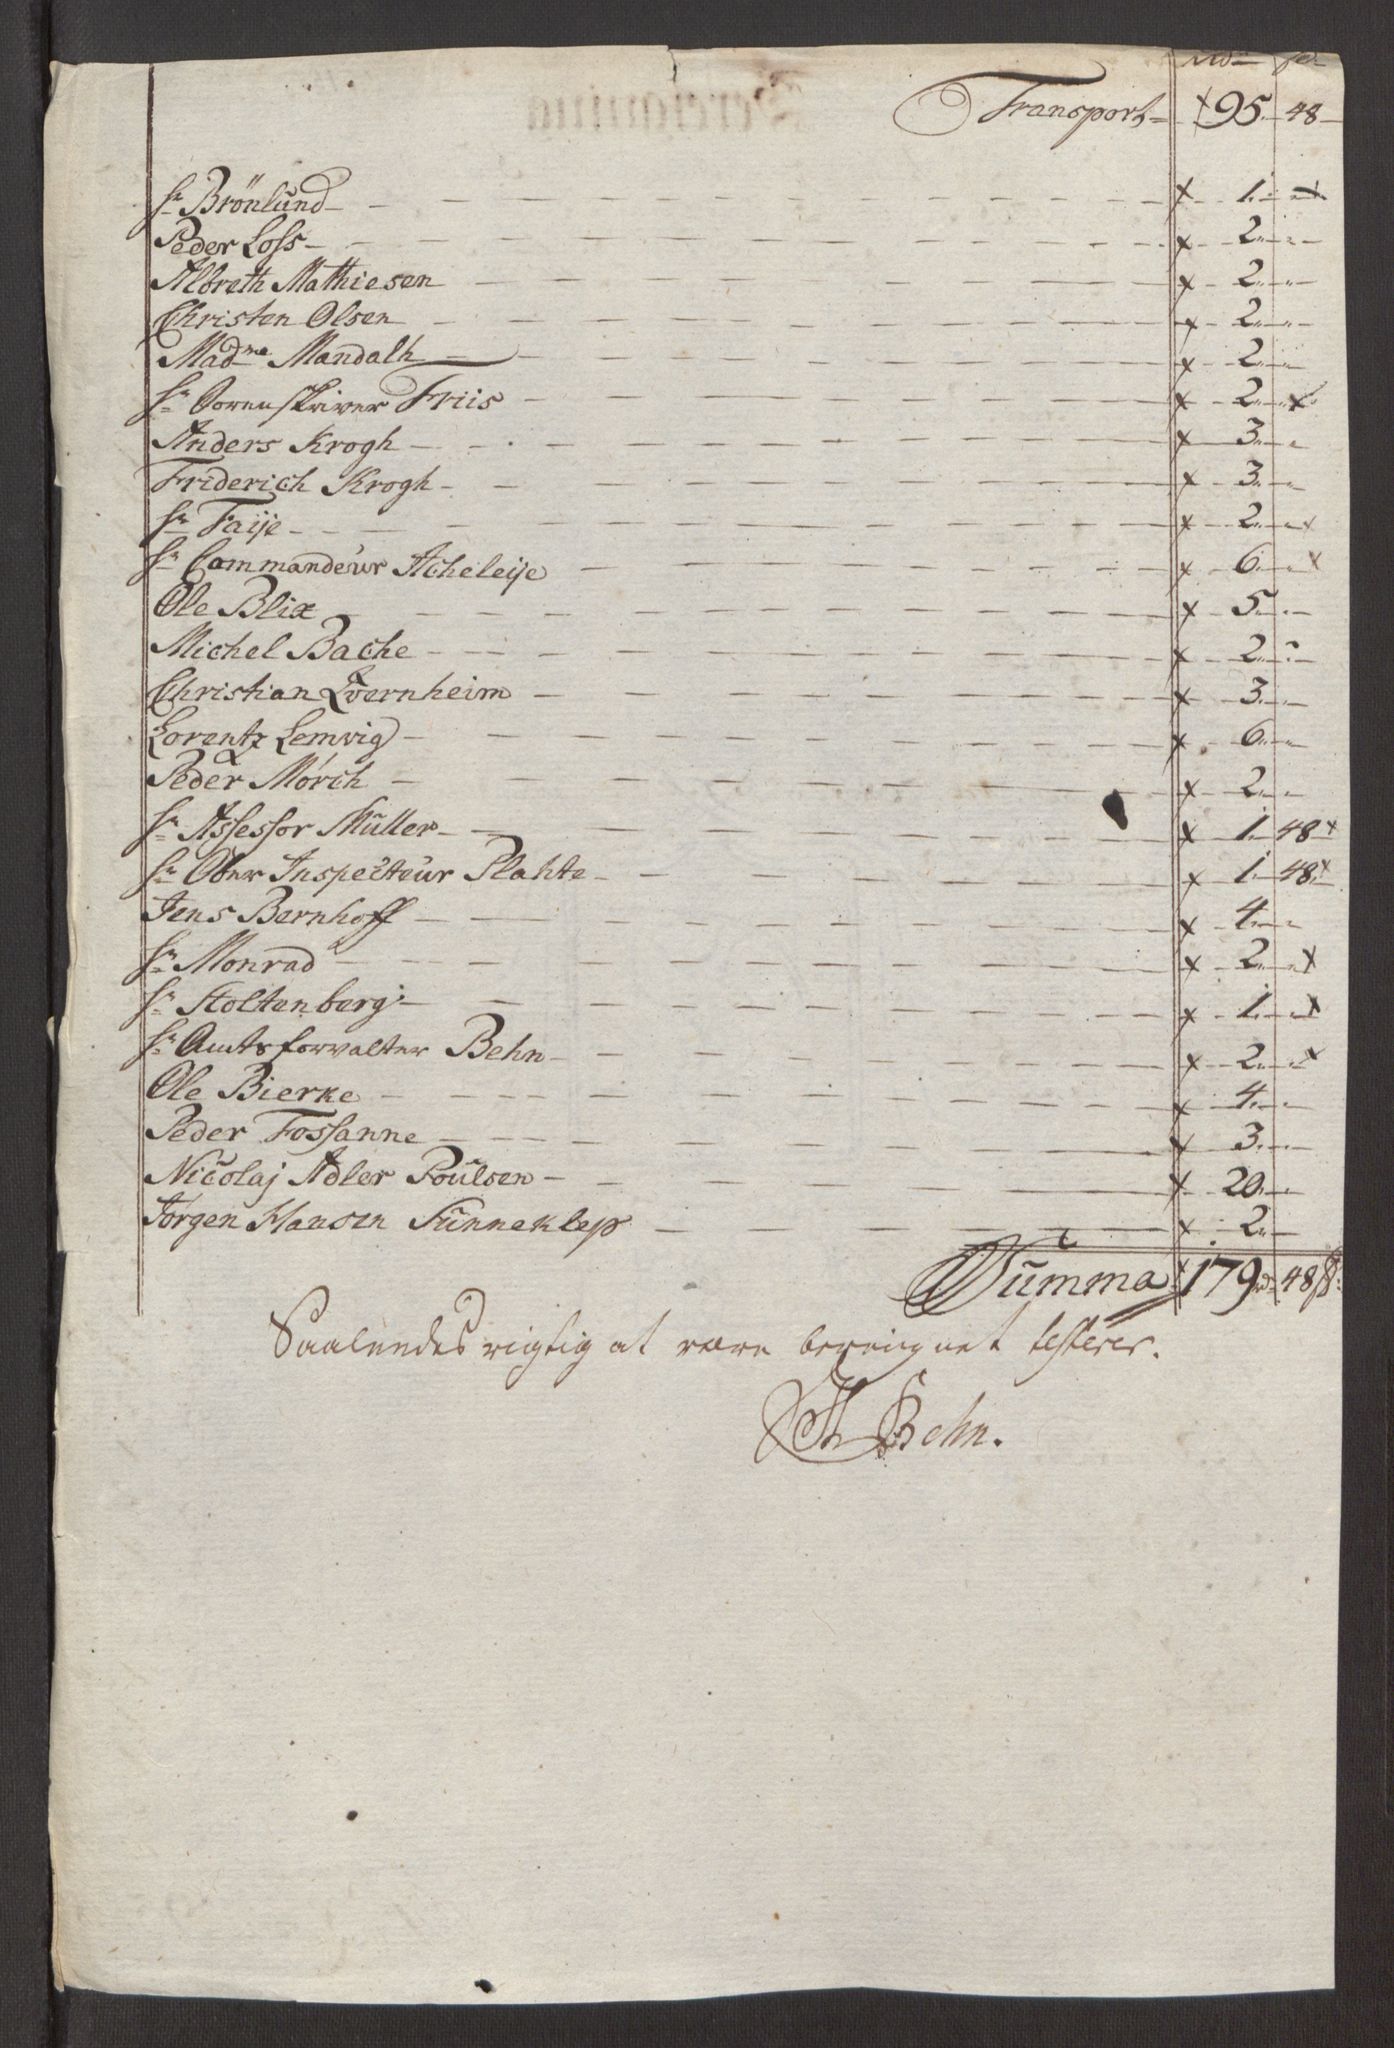 rdr sk
Transport 95. 48
Sr Brönlund 1.
Peder Loss 2.
Albreth Mathiesen 2.
Christen Olsen 2.
Madme Mandalh 2.
Sr Sorenskriver Friis 2.
Anders Krogh 3.
Friderich Krogh 3.
Sr Faije 2.
Sr Commandeur Acheleije 6.
Ole Blix 5.
Michel Bache 2.
Christian Qvernheim 3.
Lorentz Lemvig 6.
Peder Mörch 2.
Sr Assessor Müller 1. 48
Sr Ober Inspecteur Plahte 1. 48.
Jens Bernhoff 4.
Sr Monrad 2.
Sr Stoltenberg 1.
Sr Amtsforvalter Behn 2.
Ole Bierke 4.
Peder Fossanne 3.
Nicolaj Adler Poülsen 20.
Jörgen Hansen Sünneklep 2.
Summa 179 rd 48 s
Saaledes rigtig at være beregnet testerer.
Behn.